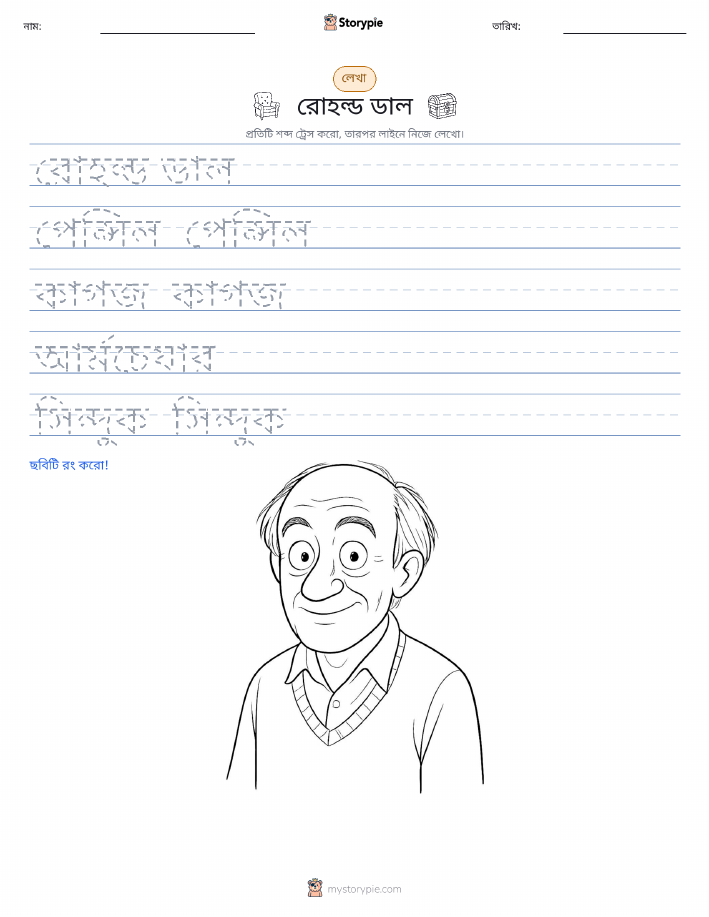 নাম:
Storypie
তারিখ:
লেখা
রোহল্ড ডাল
প্রতিটি শব্দ ট্রেস করো, তারপর লাইনে নিজে লেখো।
রোহল্ড ডাল
পেন্সিল পেন্সিল
কাগজ কাগজ
আর্মচেয়ার
সিন্দুক সিন্দুক
ছবিটি রং করো!
mystorypie.com